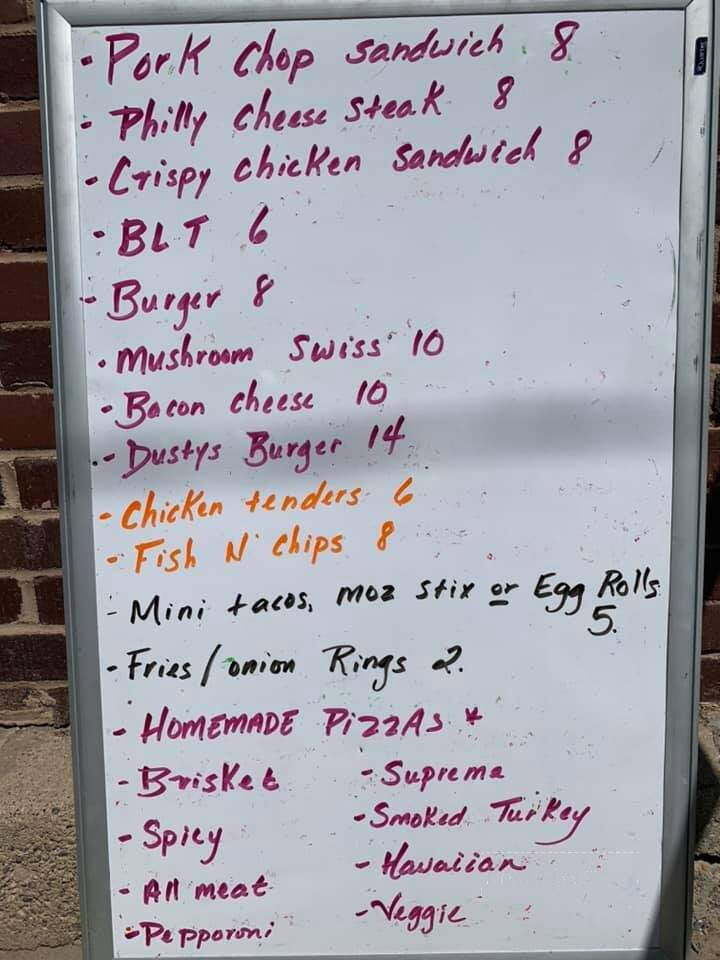 · Pork Chop sandwich 8
· Philly cheese steak 8
· Crispy chicken sandwich 8
· BLT 6
- Burger 8
· Mushroom Swiss 10
· Bacon cheese 10
- Dustys Burger 14
- Chicken tenders 6
- Fish N' chips 8
- Mini tacos, moz stix or Egg Rolls
5.
- Fries / onion Rings 2.
- HOMEMADE PizzAs *
- Brisket - Suprema
- Spicy - Smoked Turkey
- All meat - Hawaiian
- Pepporoni - Veggie